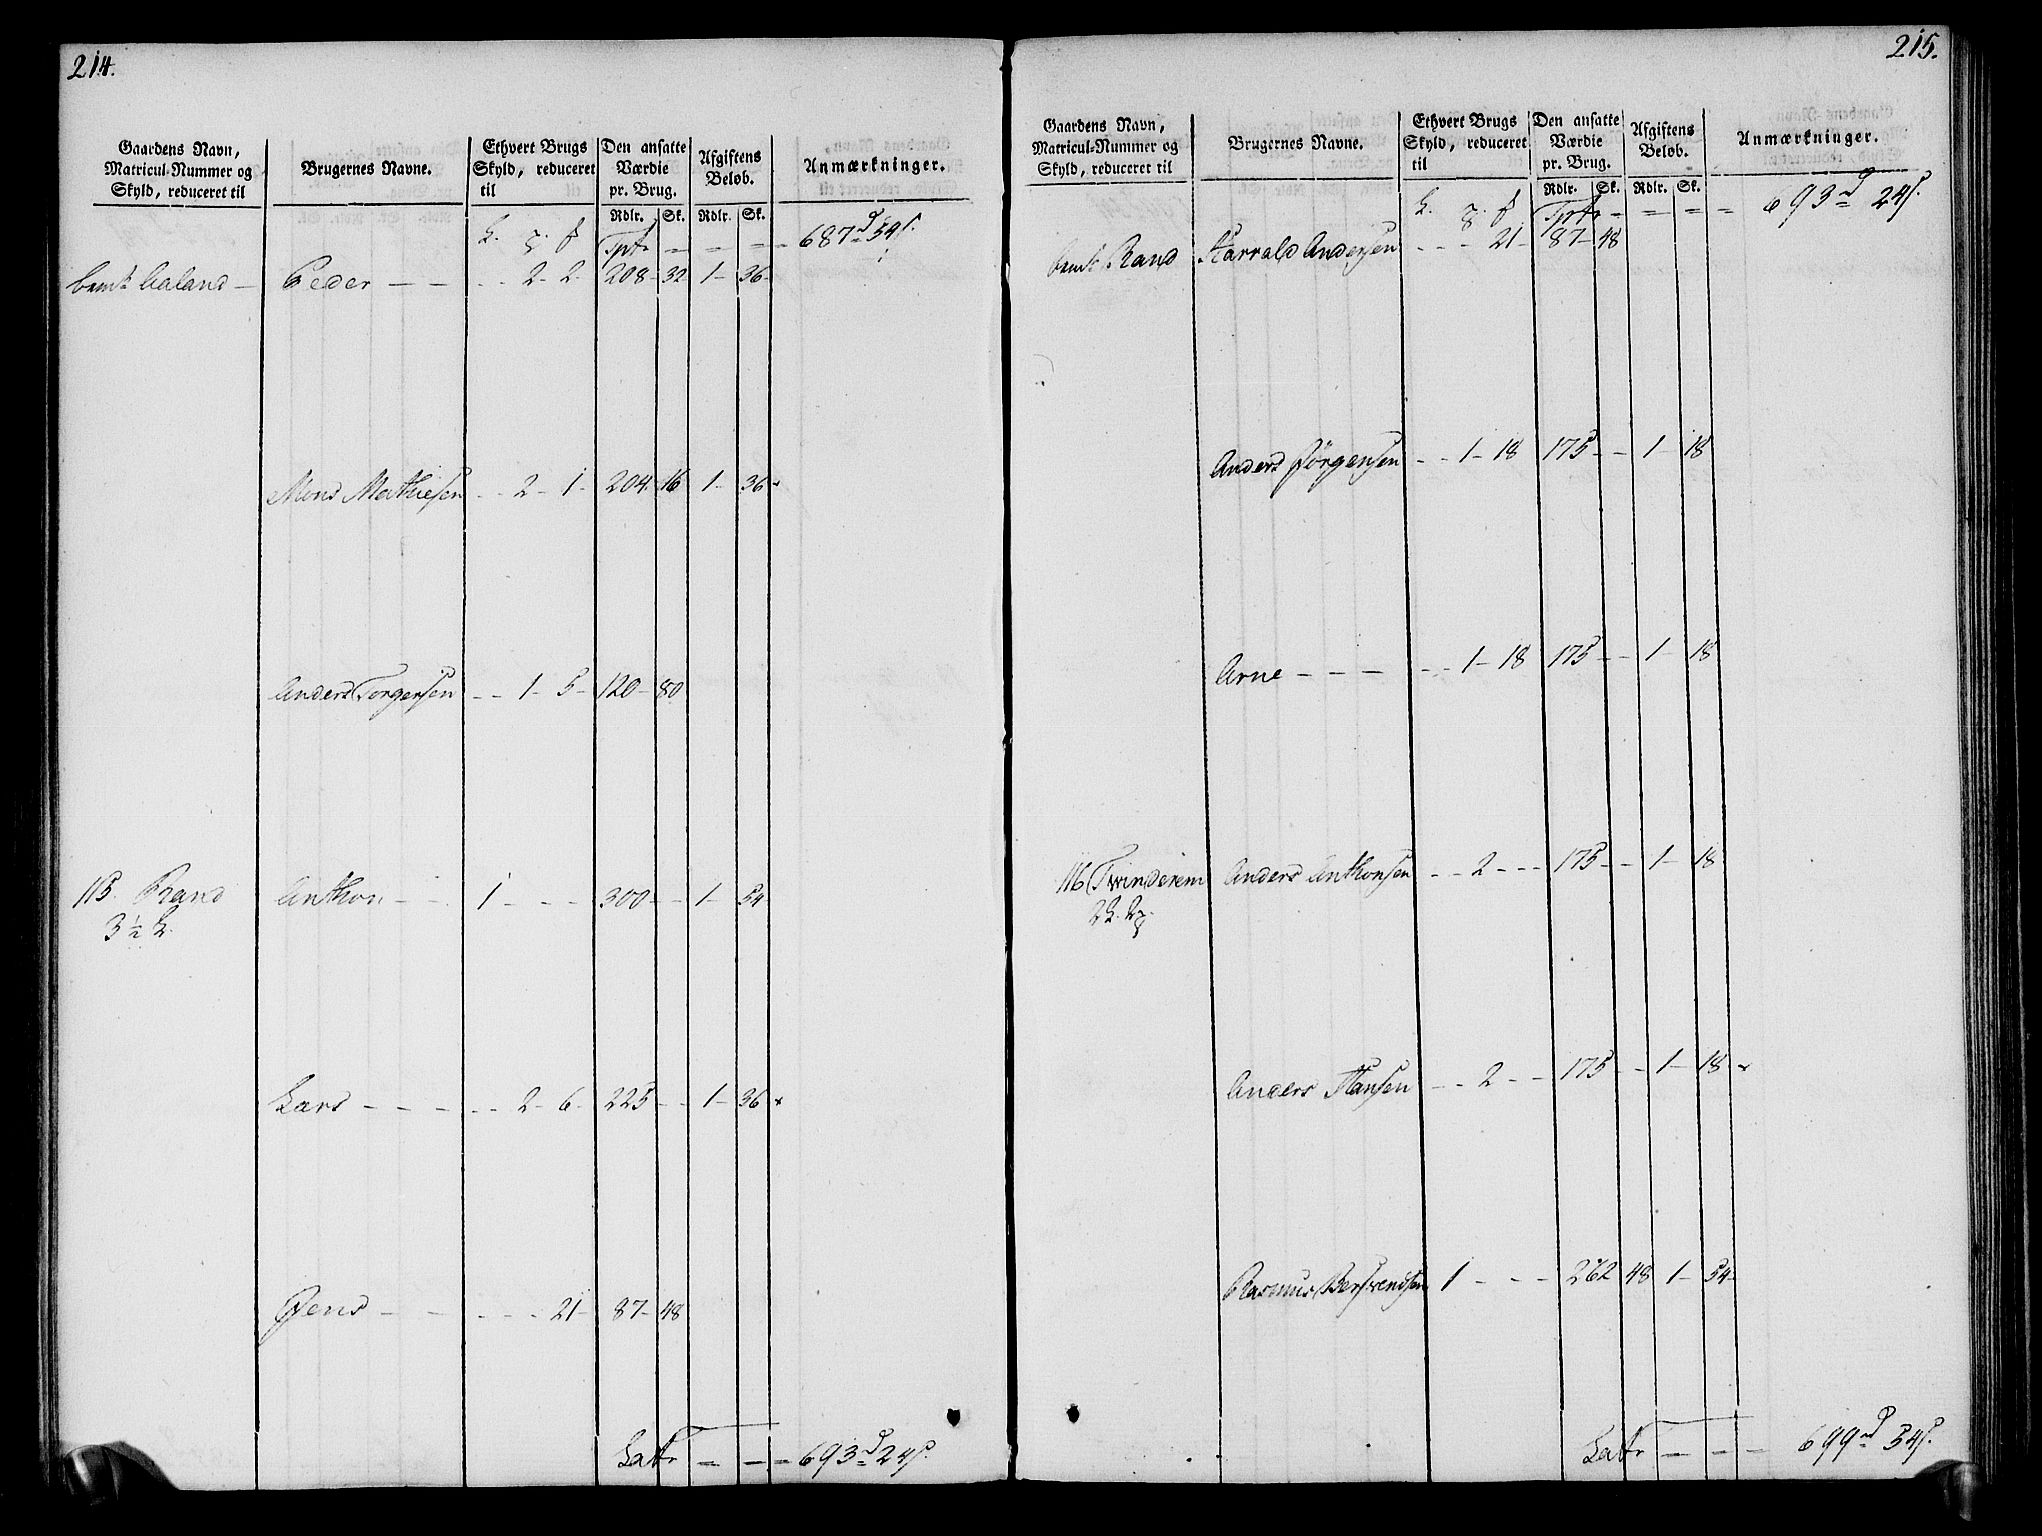 214.
Gaardens Navn, Matricul-Nummer og Skyld, reduceret til | Brugernes Navne. | Ethvert Brugs Skyld, reduceret til | Den ansatte Værdie pr. Brug. Rdlr. Sk. | Afgiftens Beløb. Rdlr. Sk. | Anmærkninger.
Tptr - - - - 687 d 54 s.
Aaland - Peder - - - - 2 - 2 - 208 - 32 1 - 36 -
Mons Mathiesen - - 2 - 1 - 204. 16 1 - 36 -
Anders Torgersen - - 1 - 5 - 120 - 80
115. Rand Anthon - - 1 - - - 300 - - 1 - 54
3 ½
Lars - - - - - 2 - 6 - 225 - - 1 - 36 ×
Jens - - - - - 21 - 87 - 48
Latr - - - 693 d 24 s.
215.
Gaardens Navn, Matricul-Nummer og Skyld, reduceret til | Brugernes Navne. | Ethvert Brugs Skyld, reduceret til | Den ansatte Værdie pr. Brug. Rdlr. Sk. | Afgiftens Beløb. Rdlr. Sk. | Anmærkninger.
Tptr - - - - 693 d 24 s.
Rand Harrald Andersen - - - 21 - 87 - 48
Anders Jörgensen - - 1 - 18 175 - - 1 - 18
Arne - - - - - 1 - 18 175 - - 1 - 18
116 Twinderem Anders Anthonsen - - 2 - - - 175 - - 1 - 18
Anders Hansen - - 2 - - 175 - - 1 - 18 ×
Rasmus Berswendsen 1 - - - 262 48 1 - 54 -
Latr - - - 699 d 54 s.